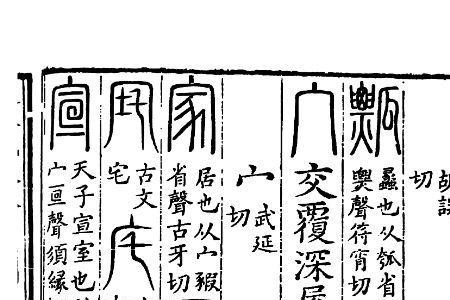 胡
切
瓢
蠡也从瓠省
聲符宵切
宀
交覆深
宀
武延
切
家
居也从宀豭
省聲古牙切
古文
宅
宣
天子宣室也
宀亘聲須緣